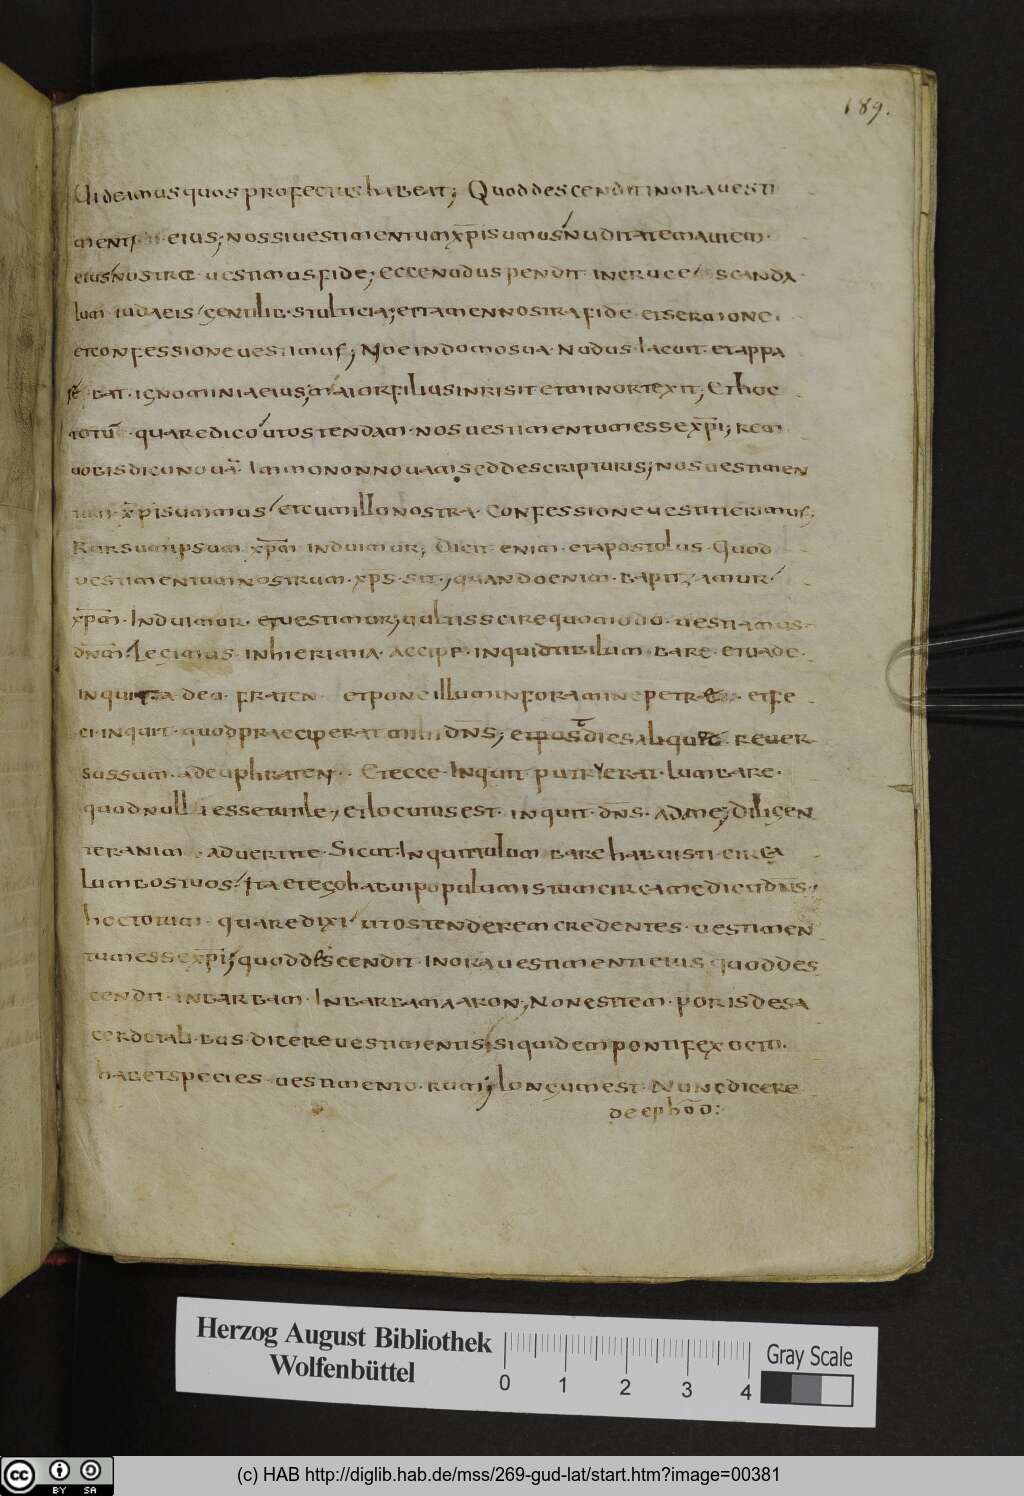 189.
Uideamus quos profectus habeat; Quod descendit in ora uesti
menti eius; nos si uestimentum xp̄i sumus nuditatem autem
eius nostrae uestimus fide; ecce nudus pendit in cruce scanda
lum iudaeis gentilib· stulticia; et tamen nostra fide et sermone
et confessione uestimus; Noe in domo sua nudus iacuit et appa
bat ignominia eius; maior filius inrisit et minor texit; Et hoc
totū quare dico ut ostendam nos uestimentum esse xp̄i; rem
uobis dico nouā Immo non nouam sed de scripturis; nos uestimen
tum xp̄i sumus et cum illo nostra confessione uestierimus;
Rursum ipsum xp̄m induimur; Dicit enim et apostolus Quod
uestimentum nostrum xp̄s sit; quando enim baptizamur
xp̄m Induimur et uestimur; uultis scire quomodo uestiamus
dn̄m Legimus in hieremia Accipe inquid tibi lumbare et uade
inquit ad eufraten et pone illum in foramine petrae et fe
ci inquit quod praeceperat mihi dn̄s; et post dies aliquot reuer
sus sum ad euphraten Et ecce Inquit putryerat lumbare
quod nulli esset utile; et locutus est inquit dn̄s ad me; Diligen
ter anim aduertite Sicut Inquit tu lumbare habuisti circa
lumbos tuos Ita et ego habui populum istum circa me dicit dn̄s;
hoc totum quare dixi ut ostenderem credentes uestimen
tum esse xp̄i; quod descendit In ora uestimenti eius quod des
cendit in barbam In barbam aaron; Non est tem poris de sa
cerdotalibus dicere uestimentis siquidem pontifex octo
habet species uestimentorum; longum est Nunc dicere
de ephōd:
Herzog August Bibliothek
Wolfenbüttel
0 1 2 3 4
Gray Scale
cc BY SA
(c) HAB http://diglib.hab.de/mss/269-gud-lat/start.htm?image=00381